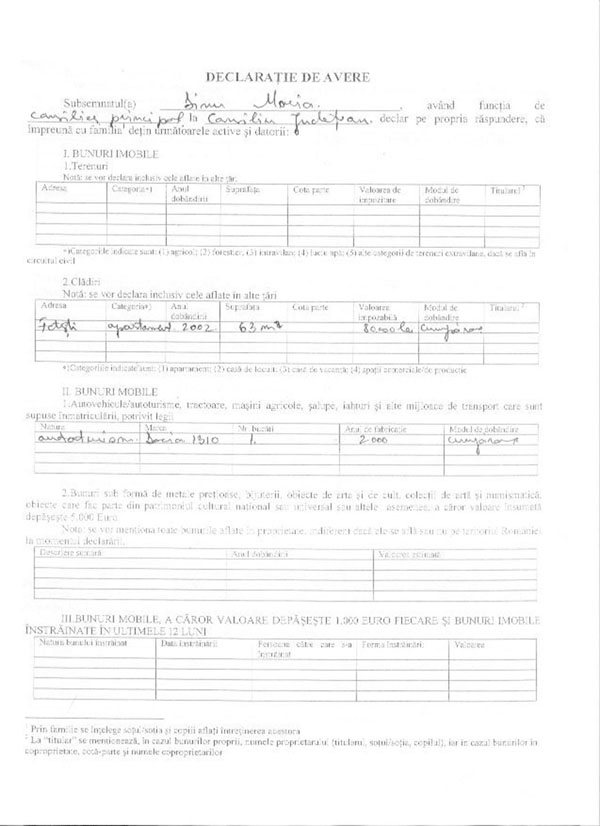 DECLARAȚIE DE AVERE
Subsemnatul(a) Dinu Maria, având funcția de
consilier principal la Consiliu Județean, declar pe propria răspundere, că
împreună cu familia¹ dețin următoarele active și datorii:
I. BUNURI IMOBILE
1.Terenuri
Notă: se vor declara inclusiv cele aflate în alte țări
Adresa Categoria*) Anul dobândirii Suprafața Cota parte Valoarea de impozitare Modul de dobândire Titularul ²
*)Categoriile indicate sunt: (1) agricol; (2) forestier; (3) intravilan; (4) luciu apă; (5) alte categorii de terenuri extravilane, dacă se află în
circuitul civil
2.Clădiri
Notă: se vor declara inclusiv cele aflate în alte țări
Adresa Categoria*) Anul dobândirii Suprafața Cota parte Valoarea impozabilă Modul de dobândire Titularul ²
Fetești apartament 2002 63 m² 80000 lei cumpărare
*)Categoriile indicate sunt: (1) apartament; (2) casă de locuit; (3) casă de vacanță; (4) spații comerciale/de producție
II. BUNURI MOBILE
1.Autovehicule/autoturisme, tractoare, mașini agricole, șalupe, iahturi și alte mijloace de transport care sunt
supuse înmatriculării, potrivit legii
Natura Marca Nr. bucăți Anul de fabricație Modul de dobândire
Dacia 1310 1. 2000 cumpărare
2.Bunuri sub formă de metale prețioase, bijuterii, obiecte de artă și de cult, colecții de artă și numismatică,
obiecte care fac parte din patrimoniul cultural național sau universal sau altele asemenea, a căror valoare însumată
depășește 5.000 Euro
Notă: se vor menționa toate bunurile aflate în proprietate, indiferent dacă ele se află sau nu pe teritoriul României
la momentul declarării.
Descriere sumară Anul dobândirii Valoarea estimată
III.BUNURI MOBILE, A CĂROR VALOARE DEPĂȘEȘTE 1.000 EURO FIECARE ȘI BUNURI IMOBILE
ÎNSTRĂINATE ÎN ULTIMELE 12 LUNI
Natura bunului înstrăinat Data înstrăinării Persoana către care s-a înstrăinat Forma înstrăinării Valoarea
¹ Prin familie se înțelege soțul/soția și copiii aflați în întreținerea acestora
² La "titular" se menționează, în cazul bunurilor proprii, numele proprietarului (titularul, soțul/soția, copilul), iar în cazul bunurilor în
coproprietate, cotă-parte și numele coproprietarilor